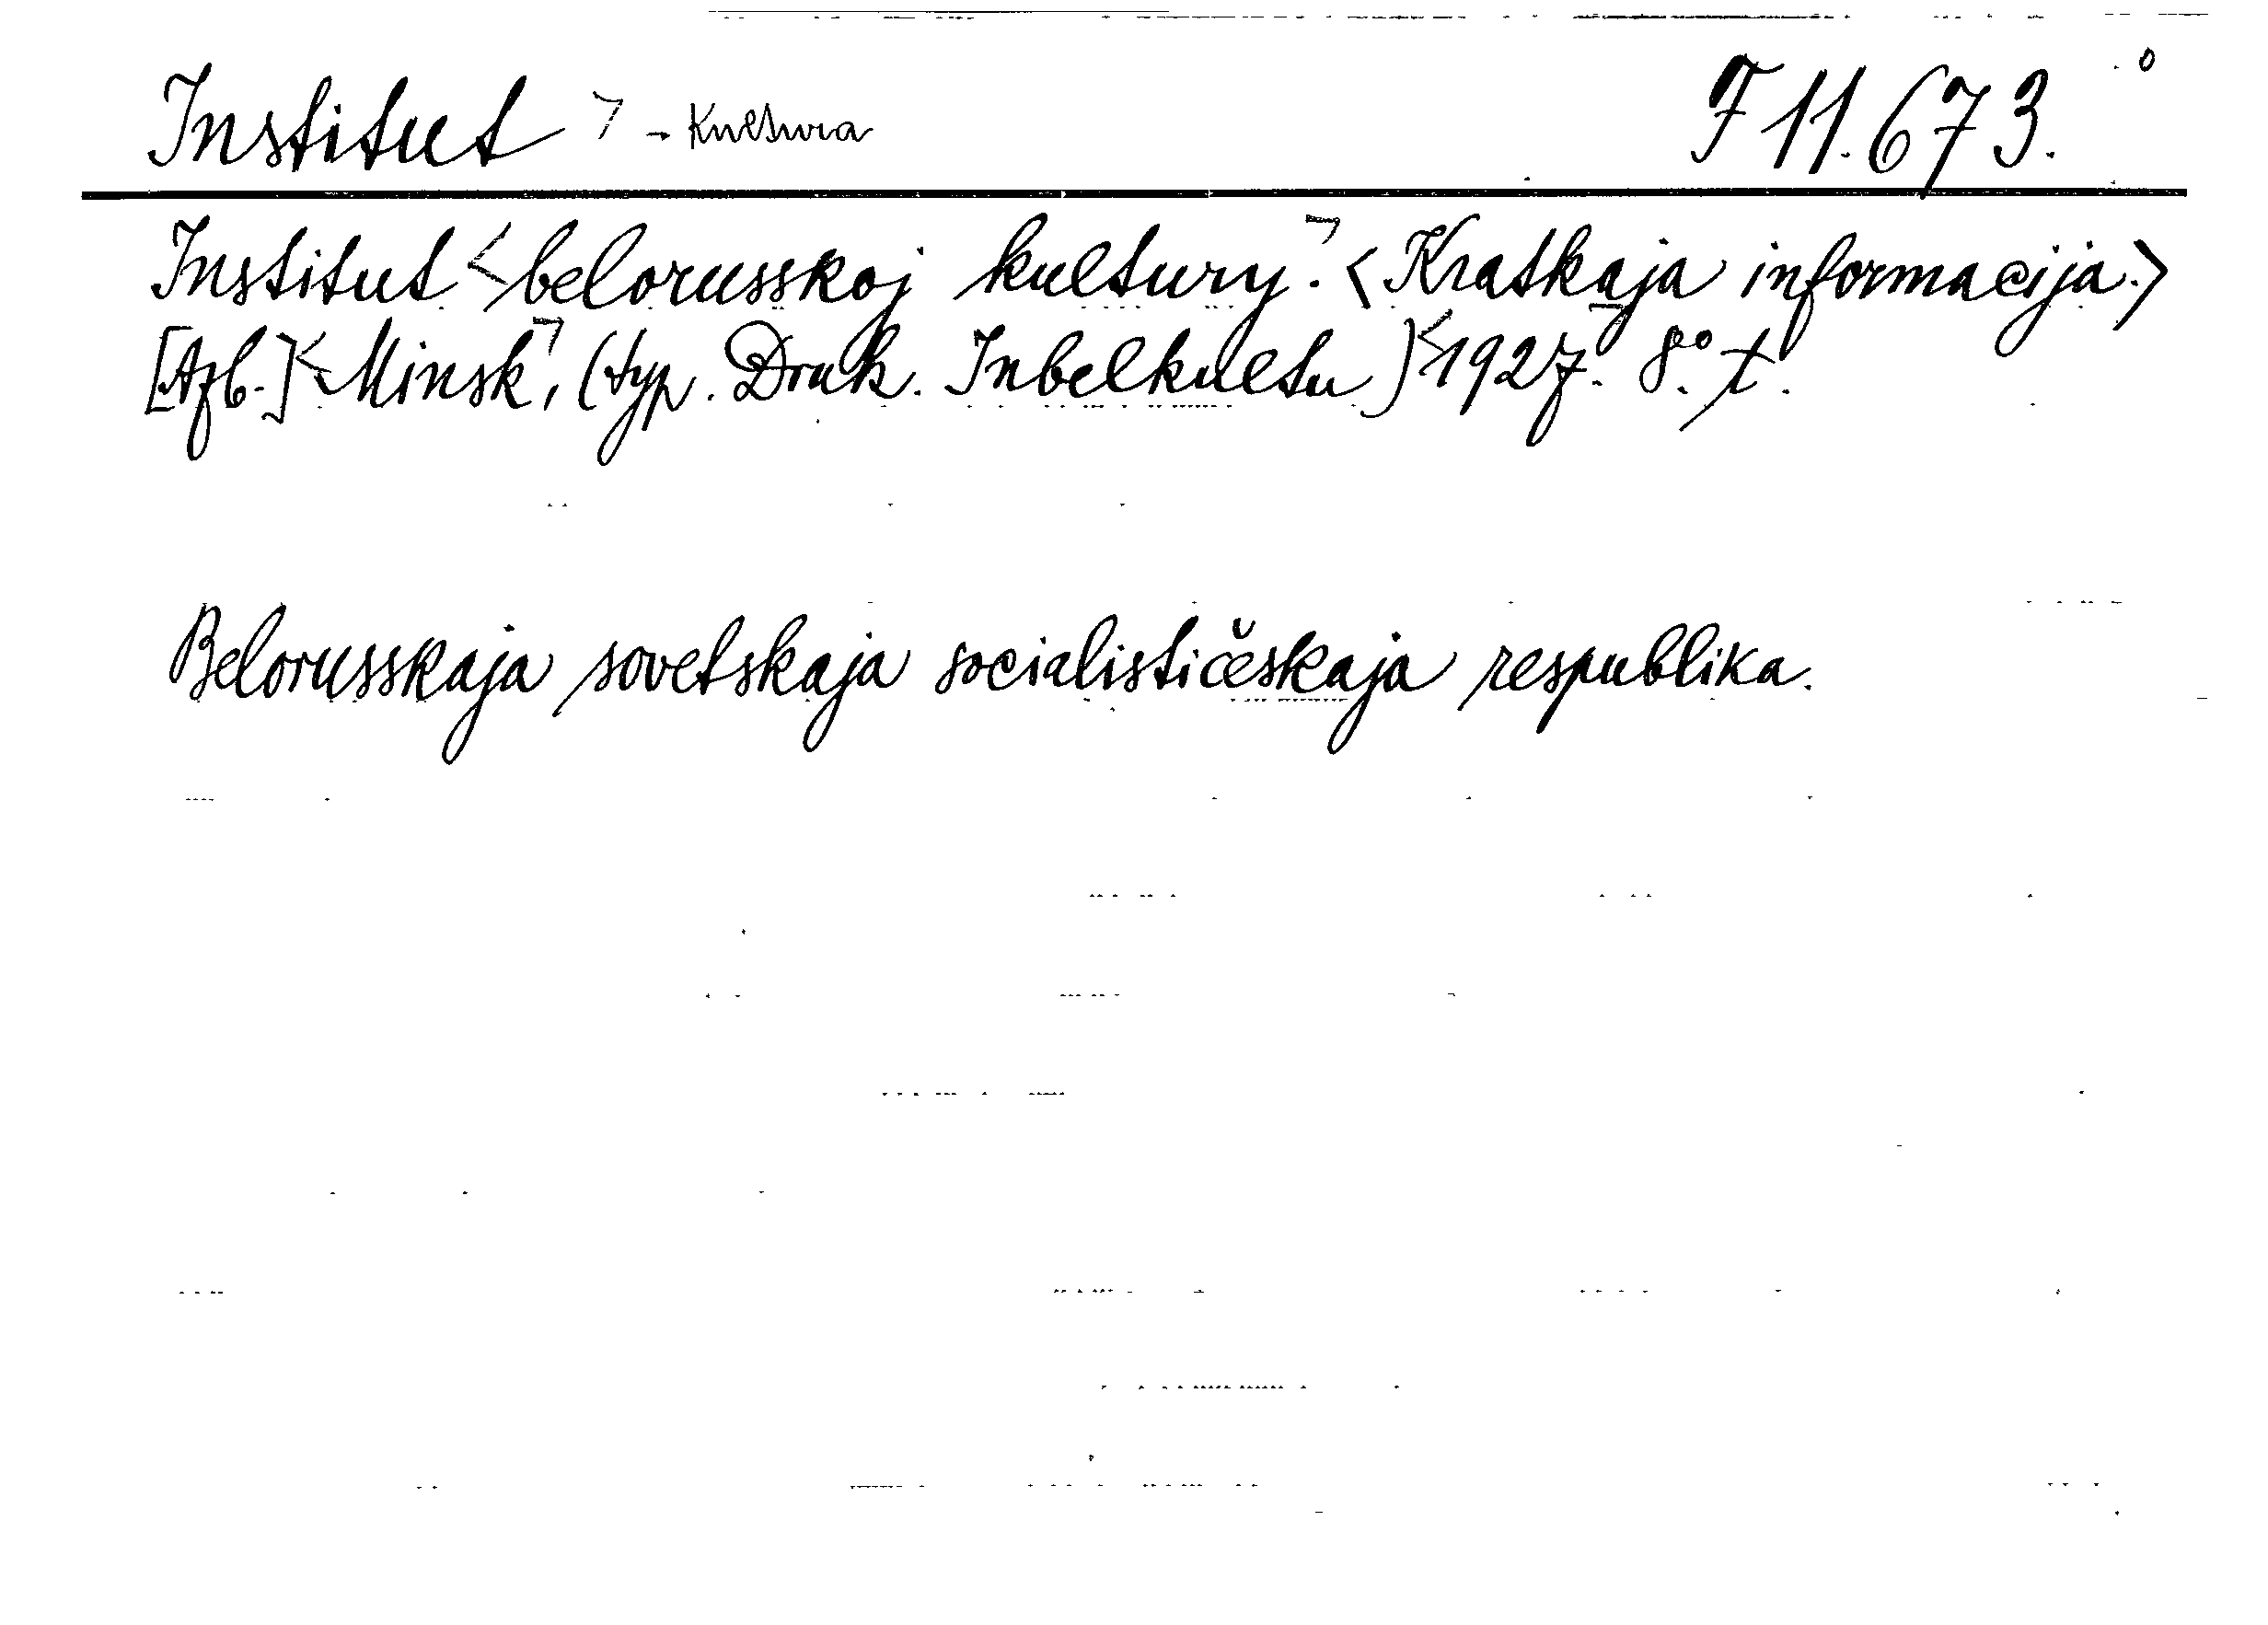 Institut - Kultura F 11.673.
Institut <belorusskoj kultury. <Kratkaja informacija.>
[Azb.] Minsk, (typ. Druk. Inbelkultu) 1927. 8° t.
Belorusskaja sovetskaja socialističeskaja respublika.